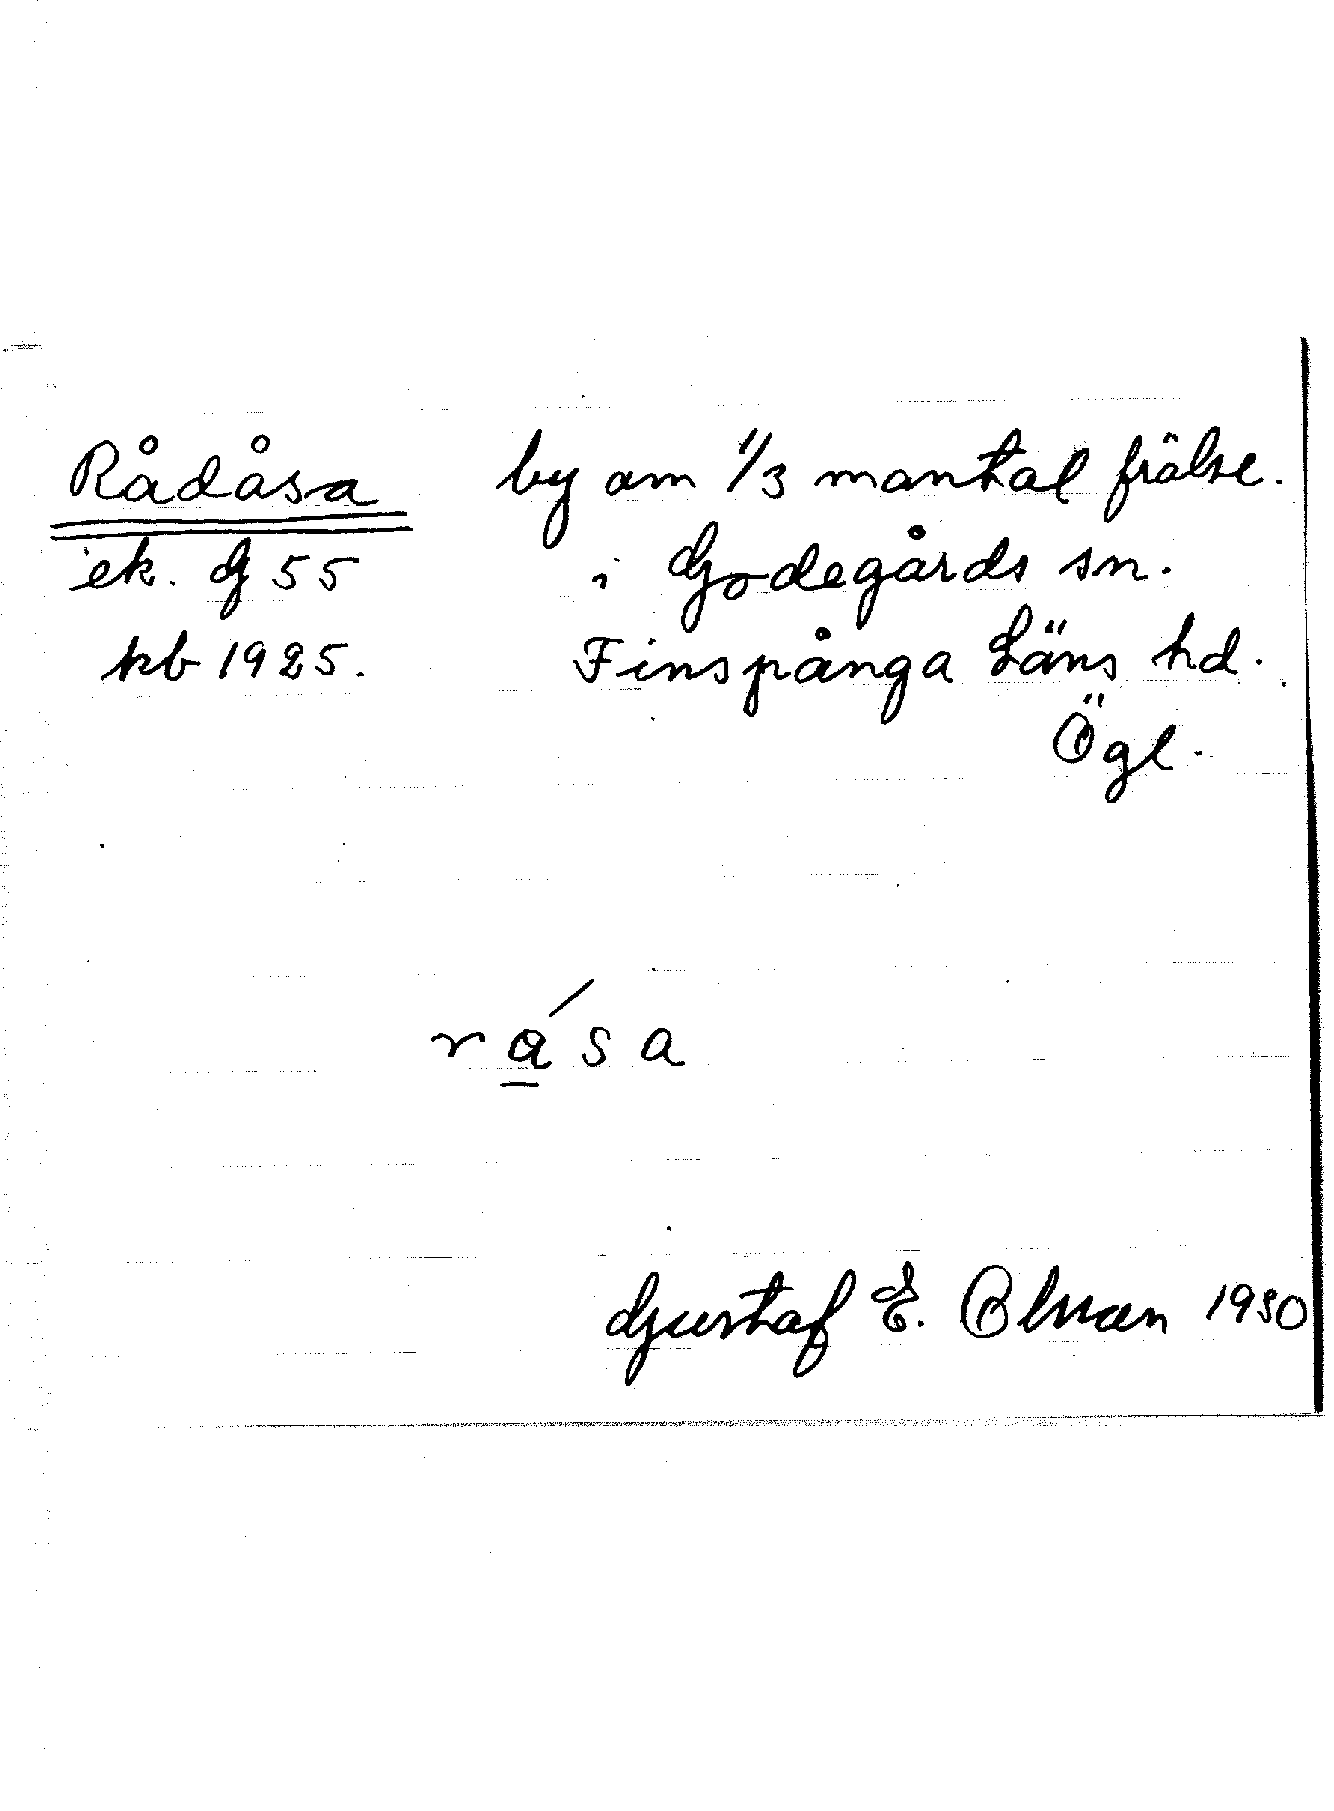 Rådåsa by om 1/3 mantal frälse.
ek. G 55 i Godegårds sn.
kb 1925. Finspånga Läns hd.
Ögl.
ra̲´sa
Gustaf E. Olsson 1930